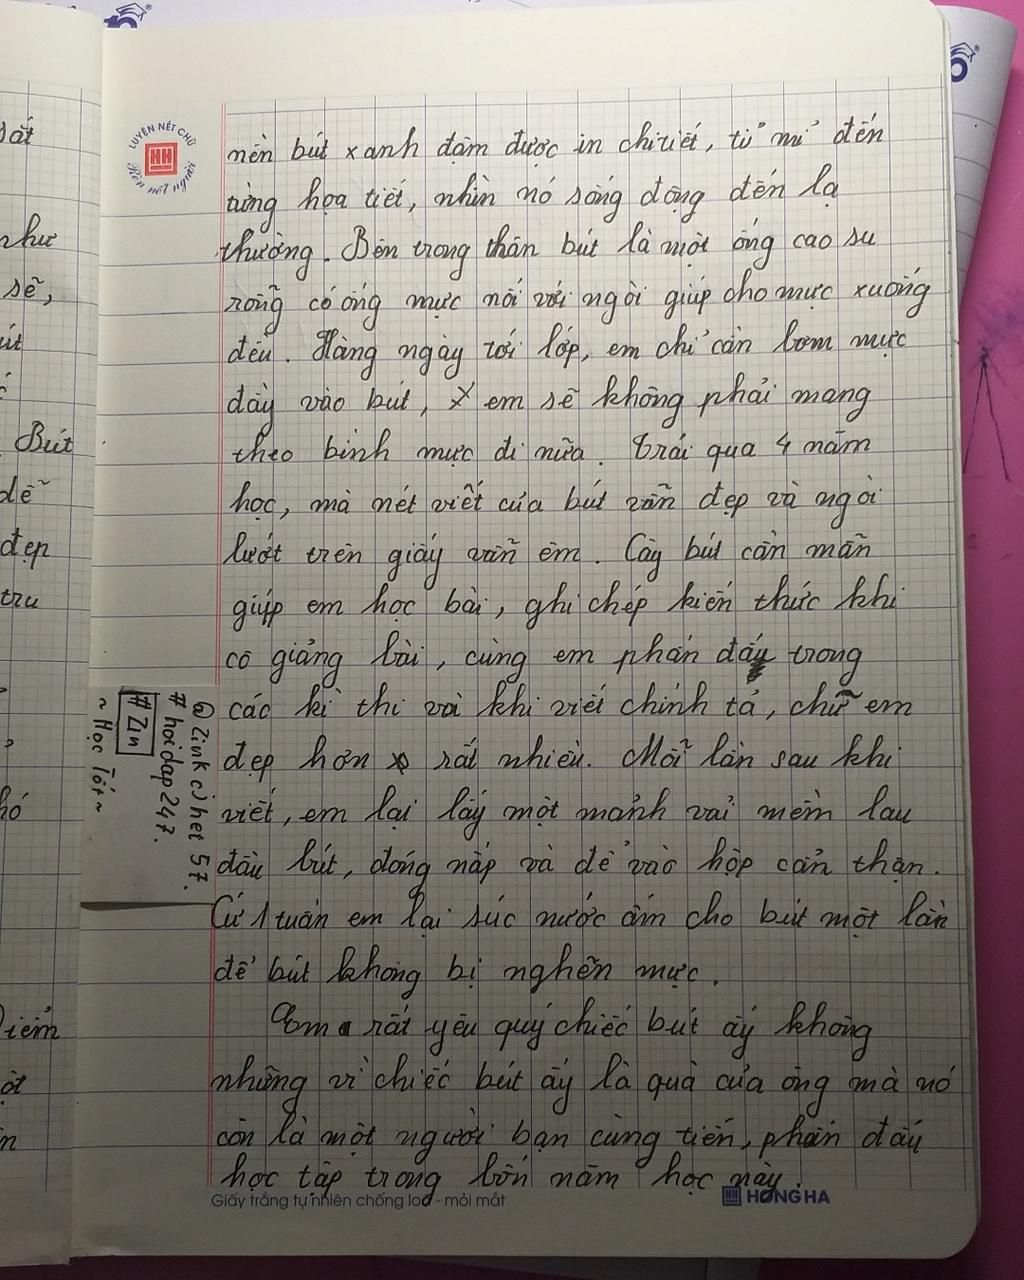 LUYỆN NẾT CHỮ
HH
Rèn nết người
nền bút xanh đậm được in chi tiết, tỉ mỉ đến
từng họa tiết, nhìn nó sống động đến lạ
thường. Bên trong thân bút là một ống cao su
rỗng có ống mực nối với ngòi giúp cho mực xuống
đều. Hàng ngày tới lớp, em chỉ cần bơm mực
đầy vào bút, em sẽ không phải mang
theo bình mực đi nữa. Trải qua 4 năm
học, mà nét viết của bút vẫn đẹp và ngòi
lướt trên giấy vẫn êm. Cây bút cần mẫn
giúp em học bài, ghi chép kiến thức khi
cô giảng bài, cùng em phấn đấu trong
các kì thi và khi viết chính tả, chữ em
đẹp hơn rất nhiều. Mỗi lần sau khi
viết, em lại lấy một mảnh vải mềm lau
đầu bút, đóng nắp và để vào hộp cẩn thận.
Cứ 1 tuần em lại súc nước ấm cho bút một lần
để bút không bị nghẽn mực.
Em rất yêu quý chiếc bút ấy không
những vì chiếc bút ấy là quà của ông mà nó
còn là một người bạn cùng tiến, phấn đấu
học tập trong bốn năm học này.
@Zinkcjhet57.
#hoidap247.
#Zin
~ Học Tốt ~
Giấy trắng tự nhiên chống loá - mỏi mắt
HH HONG HA
sát
như
sẽ,
Bút
dễ
đẹp
tru